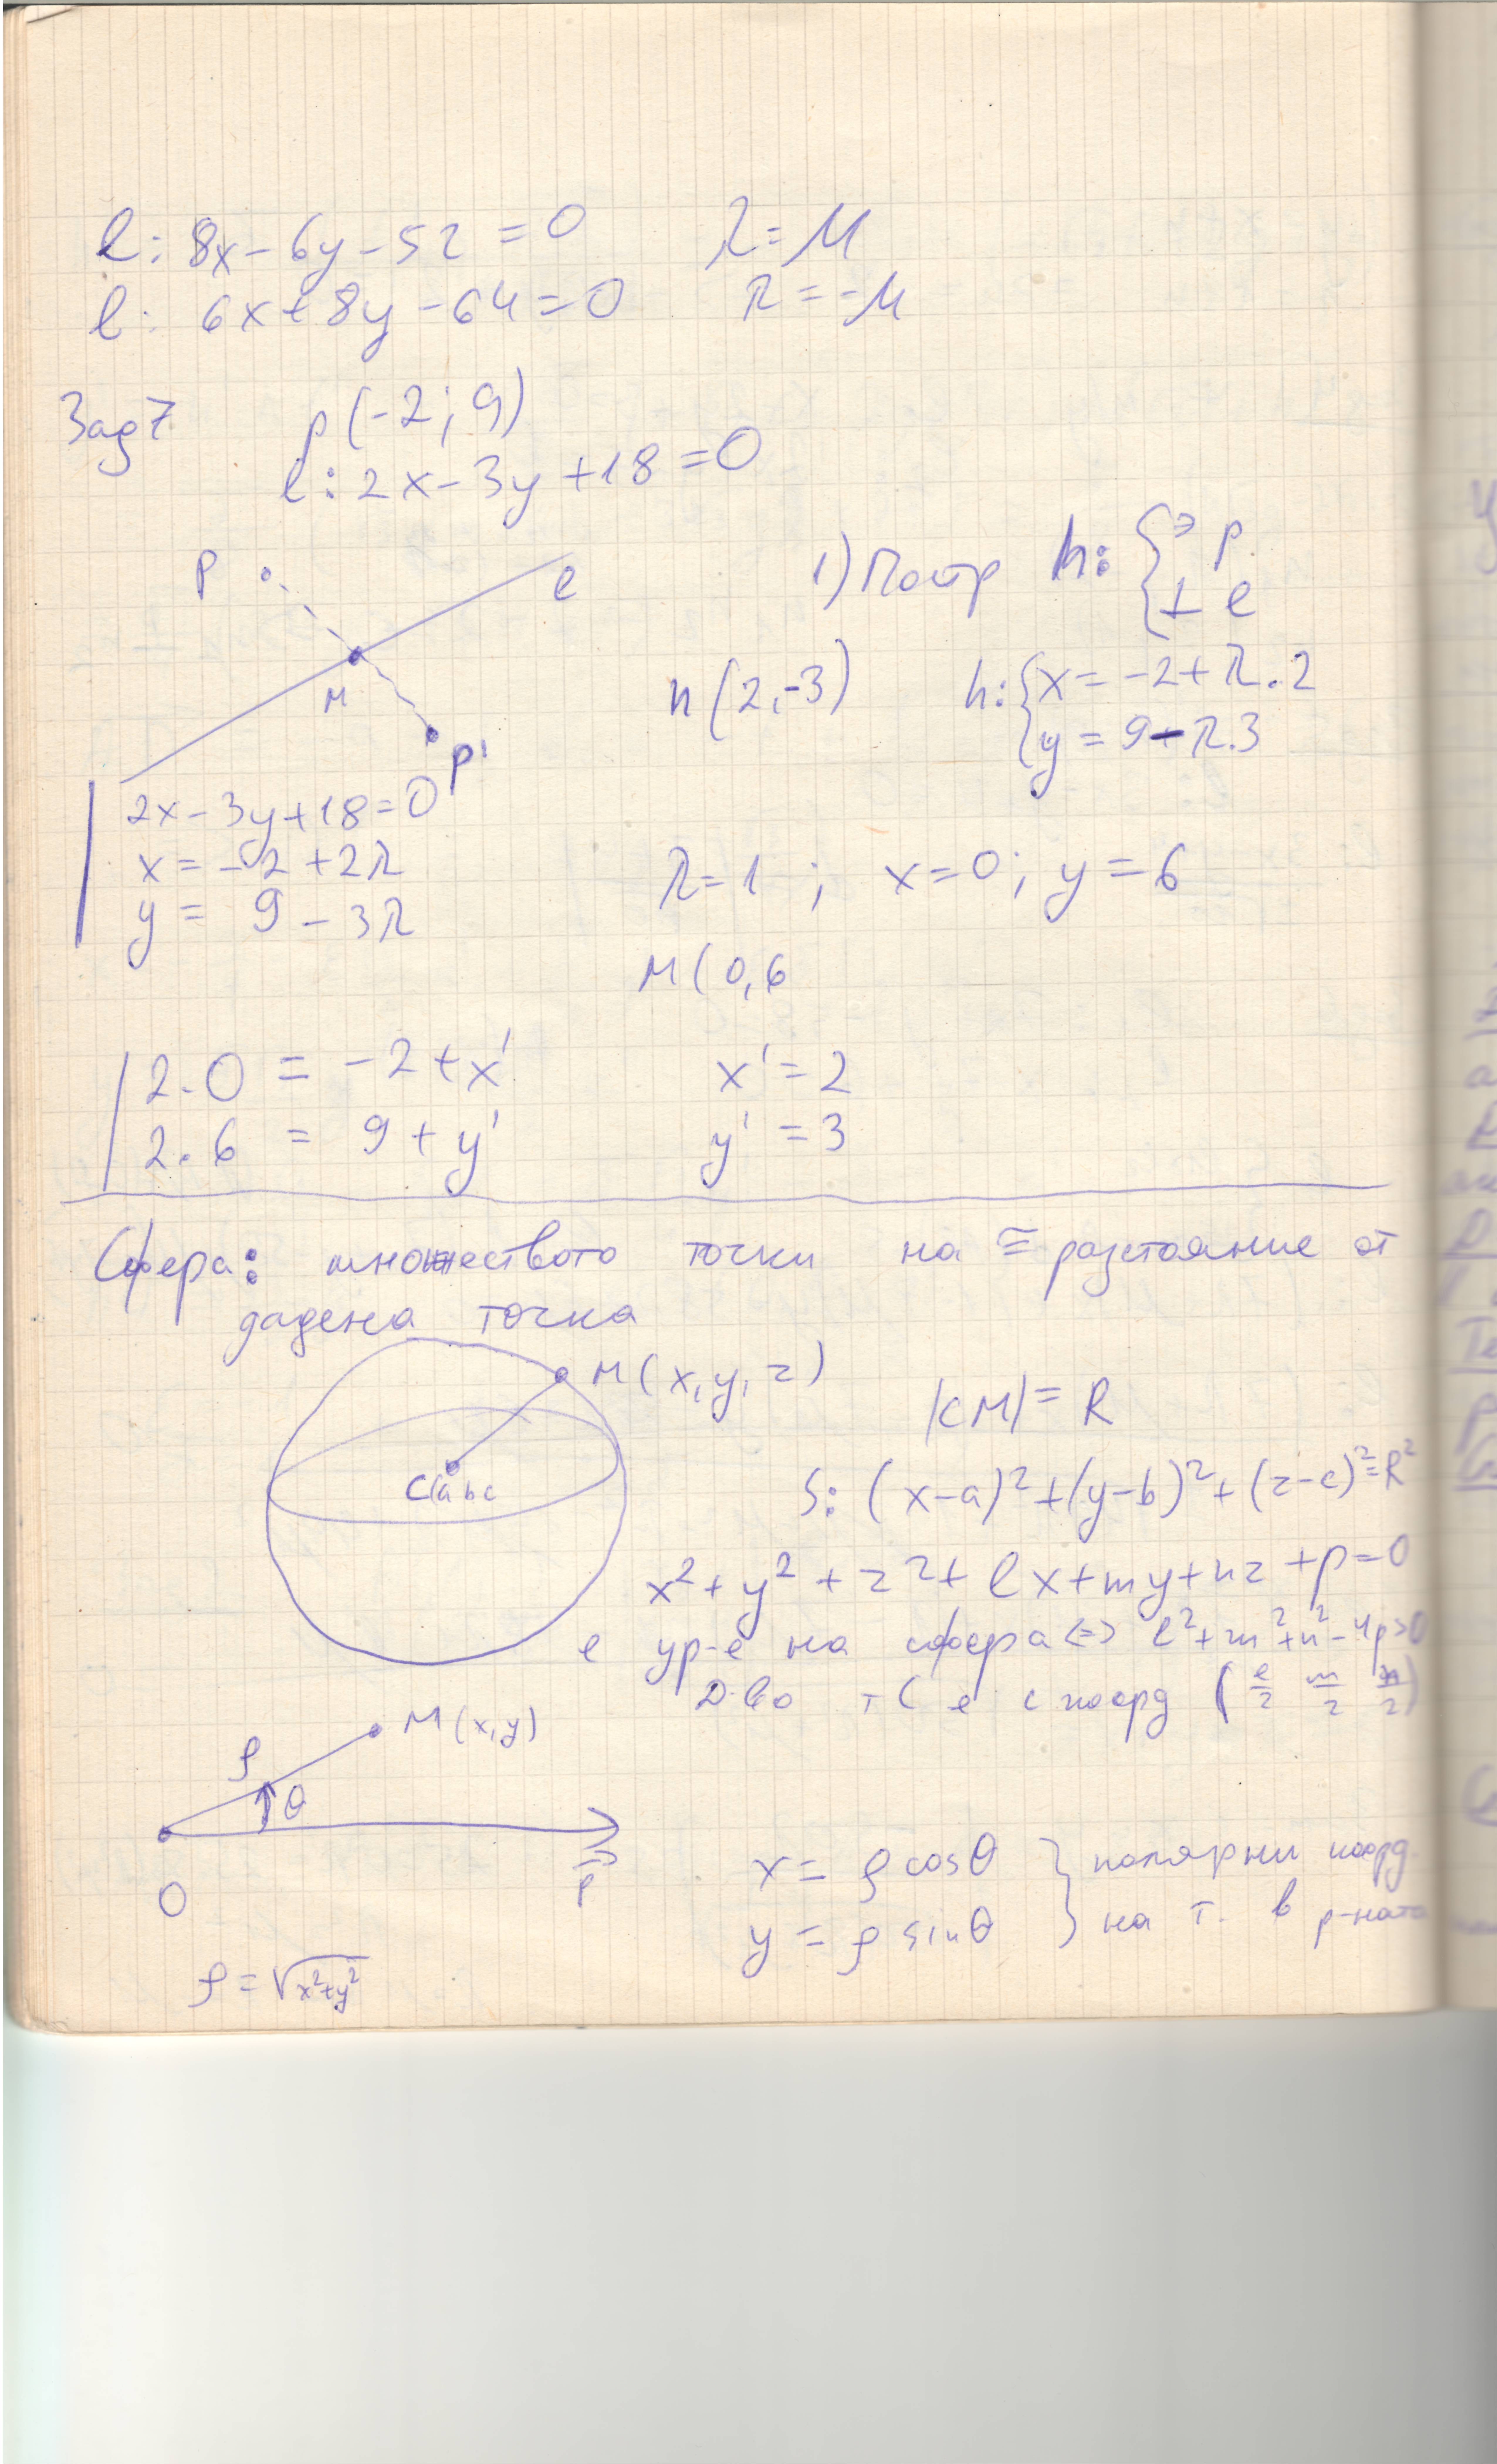 l: 8x - 6y - 52 = 0 λ = μ
l: 6x + 8y - 64 = 0 λ = -μ
Зад 7 p(-2; 9)
l: 2x - 3y + 18 = 0
P l
1) Постр h: { ∋ p
⊥ l
M
n(2, -3) h: { x = -2 + λ.2
y = 9 - λ.3
P'
2x - 3y + 18 = 0
x = -2 + 2λ
y = 9 - 3λ
λ = 1 ; x = 0; y = 6
M(0,6
2.0 = -2 + x' x' = 2
2.6 = 9 + y' y' = 3
Сфера: множеството точки на ≅ разстояние от
дадена точка
M(x, y, z)
|CM| = R
C(a b c
S: (x-a)² + (y-b)² + (z-c)² = R²
x² + y² + z² + lx + my + nz + p = 0
е ур-е на сфера <=> l² + m² + n² - 4p > 0
Д-во тС е с коорд (l/2 m/2 n/2)
M(x,y)
ρ
θ
O
x = ρ cosθ } полярни коорд.
y = ρ sinθ на т. в р-ната
ρ = √x²+y²